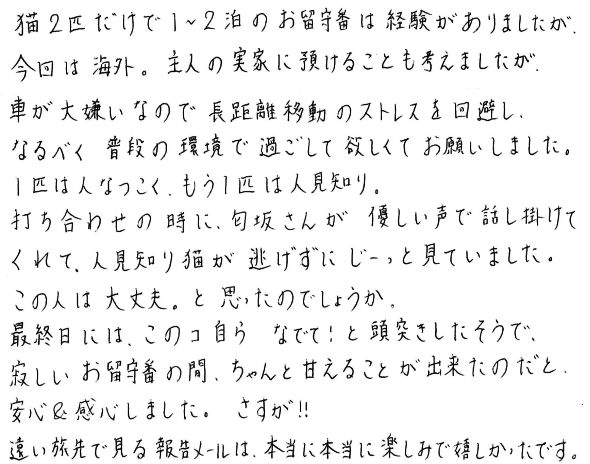 猫2匹だけで1~2泊のお留守番は経験がありましたが、
今回は海外。主人の実家に預けることも考えましたが、
車が大嫌いなので長距離移動のストレスを回避し、
なるべく普段の環境で過ごして欲しくてお願いしました。
1匹は人なつこく、もう1匹は人見知り。
打ち合わせの時に、匂坂さんが優しい声で話し掛けて
くれて、人見知り猫が逃げずにじーっと見ていました。
この人は大丈夫。と思ったのでしょうか。
最終日には、このコ自らなでて!と頭突きしたそうで、
寂しいお留守番の間、ちゃんと甘えることが出来たのだと、
安心&感心しました。さすが!!
遠い旅先で見る報告メールは、本当に本当に楽しみで嬉しかったです。